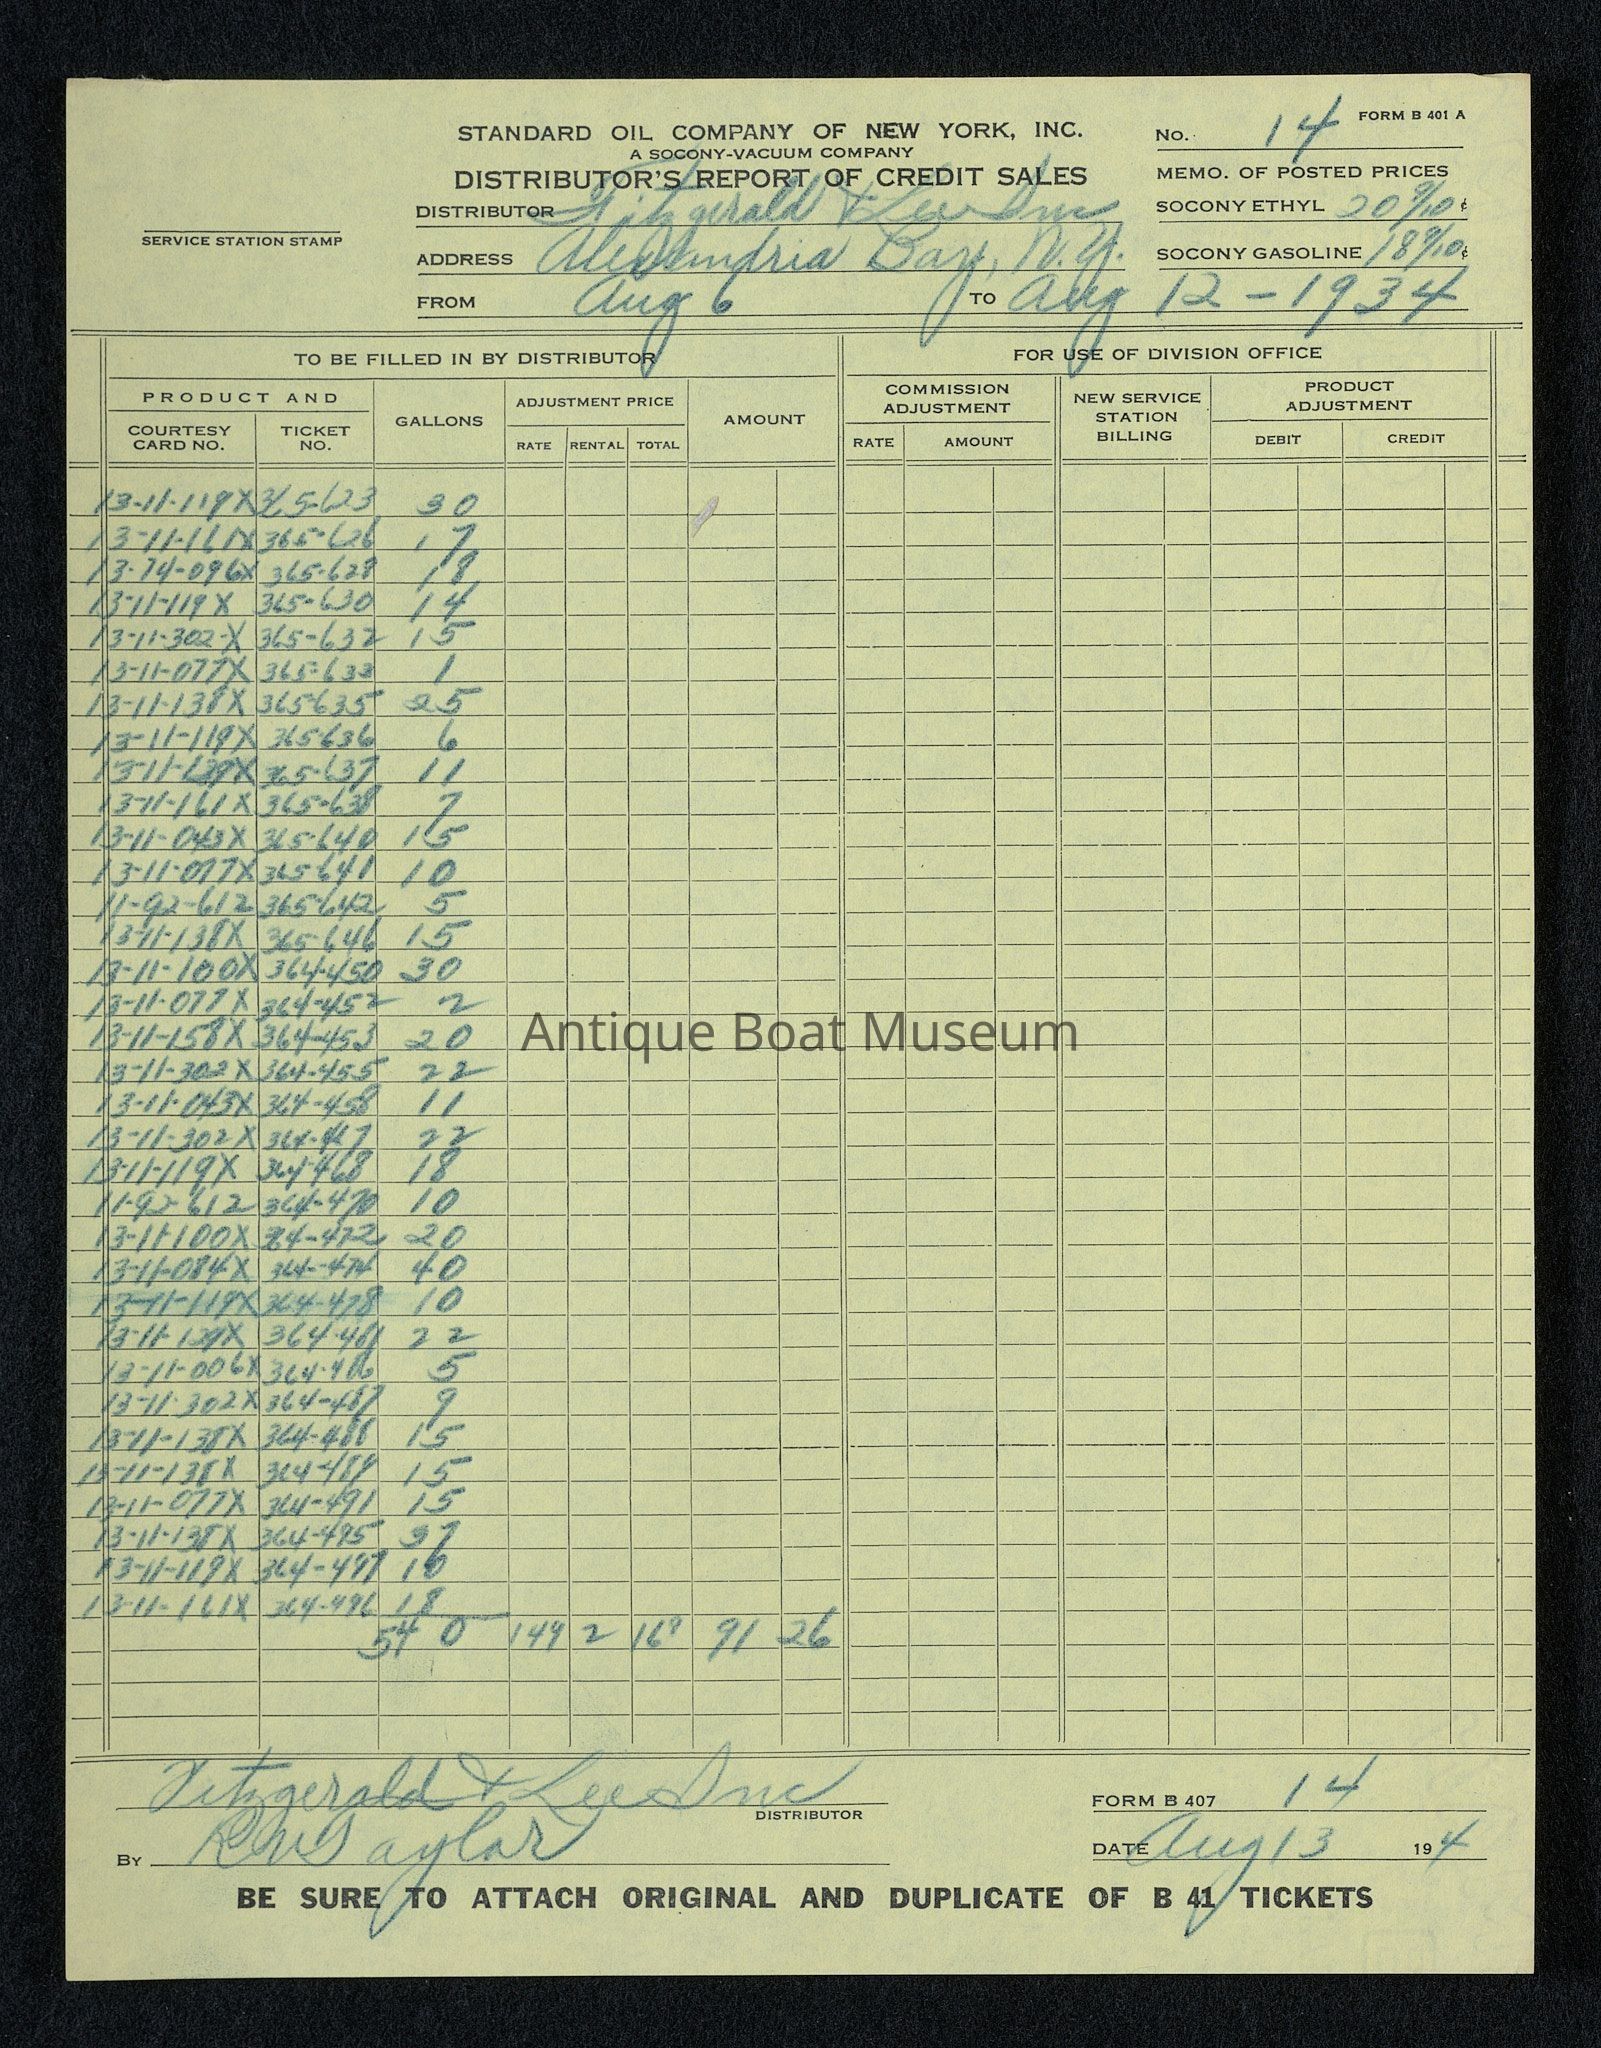 FORM B 401 A
STANDARD OIL COMPANY OF NEW YORK, INC.
No. 14
A SOCONY-VACUUM COMPANY
DISTRIBUTOR'S REPORT OF CREDIT SALES
MEMO. OF POSTED PRICES
DISTRIBUTOR Fitzgerald & Lee Inc
SOCONY ETHYL 20 9/10 ¢
SERVICE STATION STAMP
ADDRESS Alexandria Bay, N.Y.
SOCONY GASOLINE 18 9/10 ¢
FROM Aug 6 TO Aug 12 - 1934
TO BE FILLED IN BY DISTRIBUTOR
FOR USE OF DIVISION OFFICE
PRODUCT AND
COURTESY CARD NO.
TICKET NO.
GALLONS
ADJUSTMENT PRICE
RATE RENTAL TOTAL
AMOUNT
COMMISSION ADJUSTMENT
RATE AMOUNT
NEW SERVICE STATION BILLING
PRODUCT ADJUSTMENT
DEBIT CREDIT
13-11-119X 365-623 30
13-11-161X 365-626 17
13-74-096X 365-628 18
13-11-119X 365-630 14
13-11-302-X 365-632 15
13-11-077X 365-633 1
13-11-138X 365-635 25
13-11-119X 365-636 6
13-11-139X 365-637 11
13-11-161X 365-638 7
13-11-043X 365-640 15
13-11-077X 365-641 10
11-92-612 365-642 5
13-11-138X 365-646 15
13-11-100X 364-450 30
13-11-077X 364-452 2
13-11-158X 364-453 20
13-11-302X 364-455 22
13-11-043X 364-458 11
13-11-302X 364-467 22
13-11-119X 364-468 18
11-92-612 364-470 10
13-11-100X 364-472 20
13-11-084X 364-474 40
13-11-119X 364-478 10
13-11-139X 364-481 22
13-11-006X 364-486 5
13-11-302X 364-487 9
13-11-138X 364-488 15
13-11-138X 364-489 15
13-11-077X 364-491 15
13-11-138X 364-495 37
13-11-119X 364-497 10
13-11-161X 364-496 18
540 149 2 169 91 26
Antique Boat Museum
Fitzgerald & Lee Inc
DISTRIBUTOR
FORM B 407 14
By R W Taylor
DATE Aug 13 194
BE SURE TO ATTACH ORIGINAL AND DUPLICATE OF B 41 TICKETS